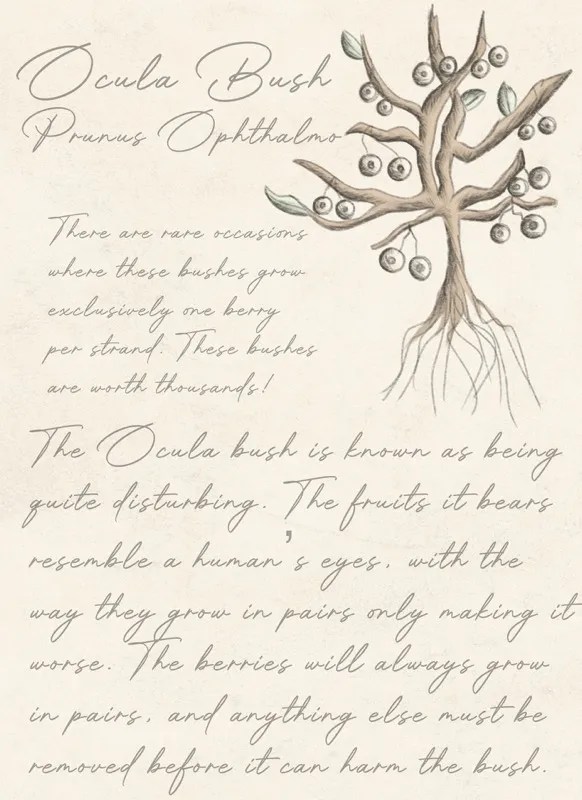 Ocula Bush
Prunus Ophthalmo
There are rare occasions
where these bushes grow
exclusively one berry
per strand. These bushes
are worth thousands!
The Ocula bush is known as being
quite disturbing. The fruits it bears
resemble a human's eyes, with the
way they grow in pairs only making it
worse. The berries will always grow
in pairs, and anything else must be
removed before it can harm the bush.